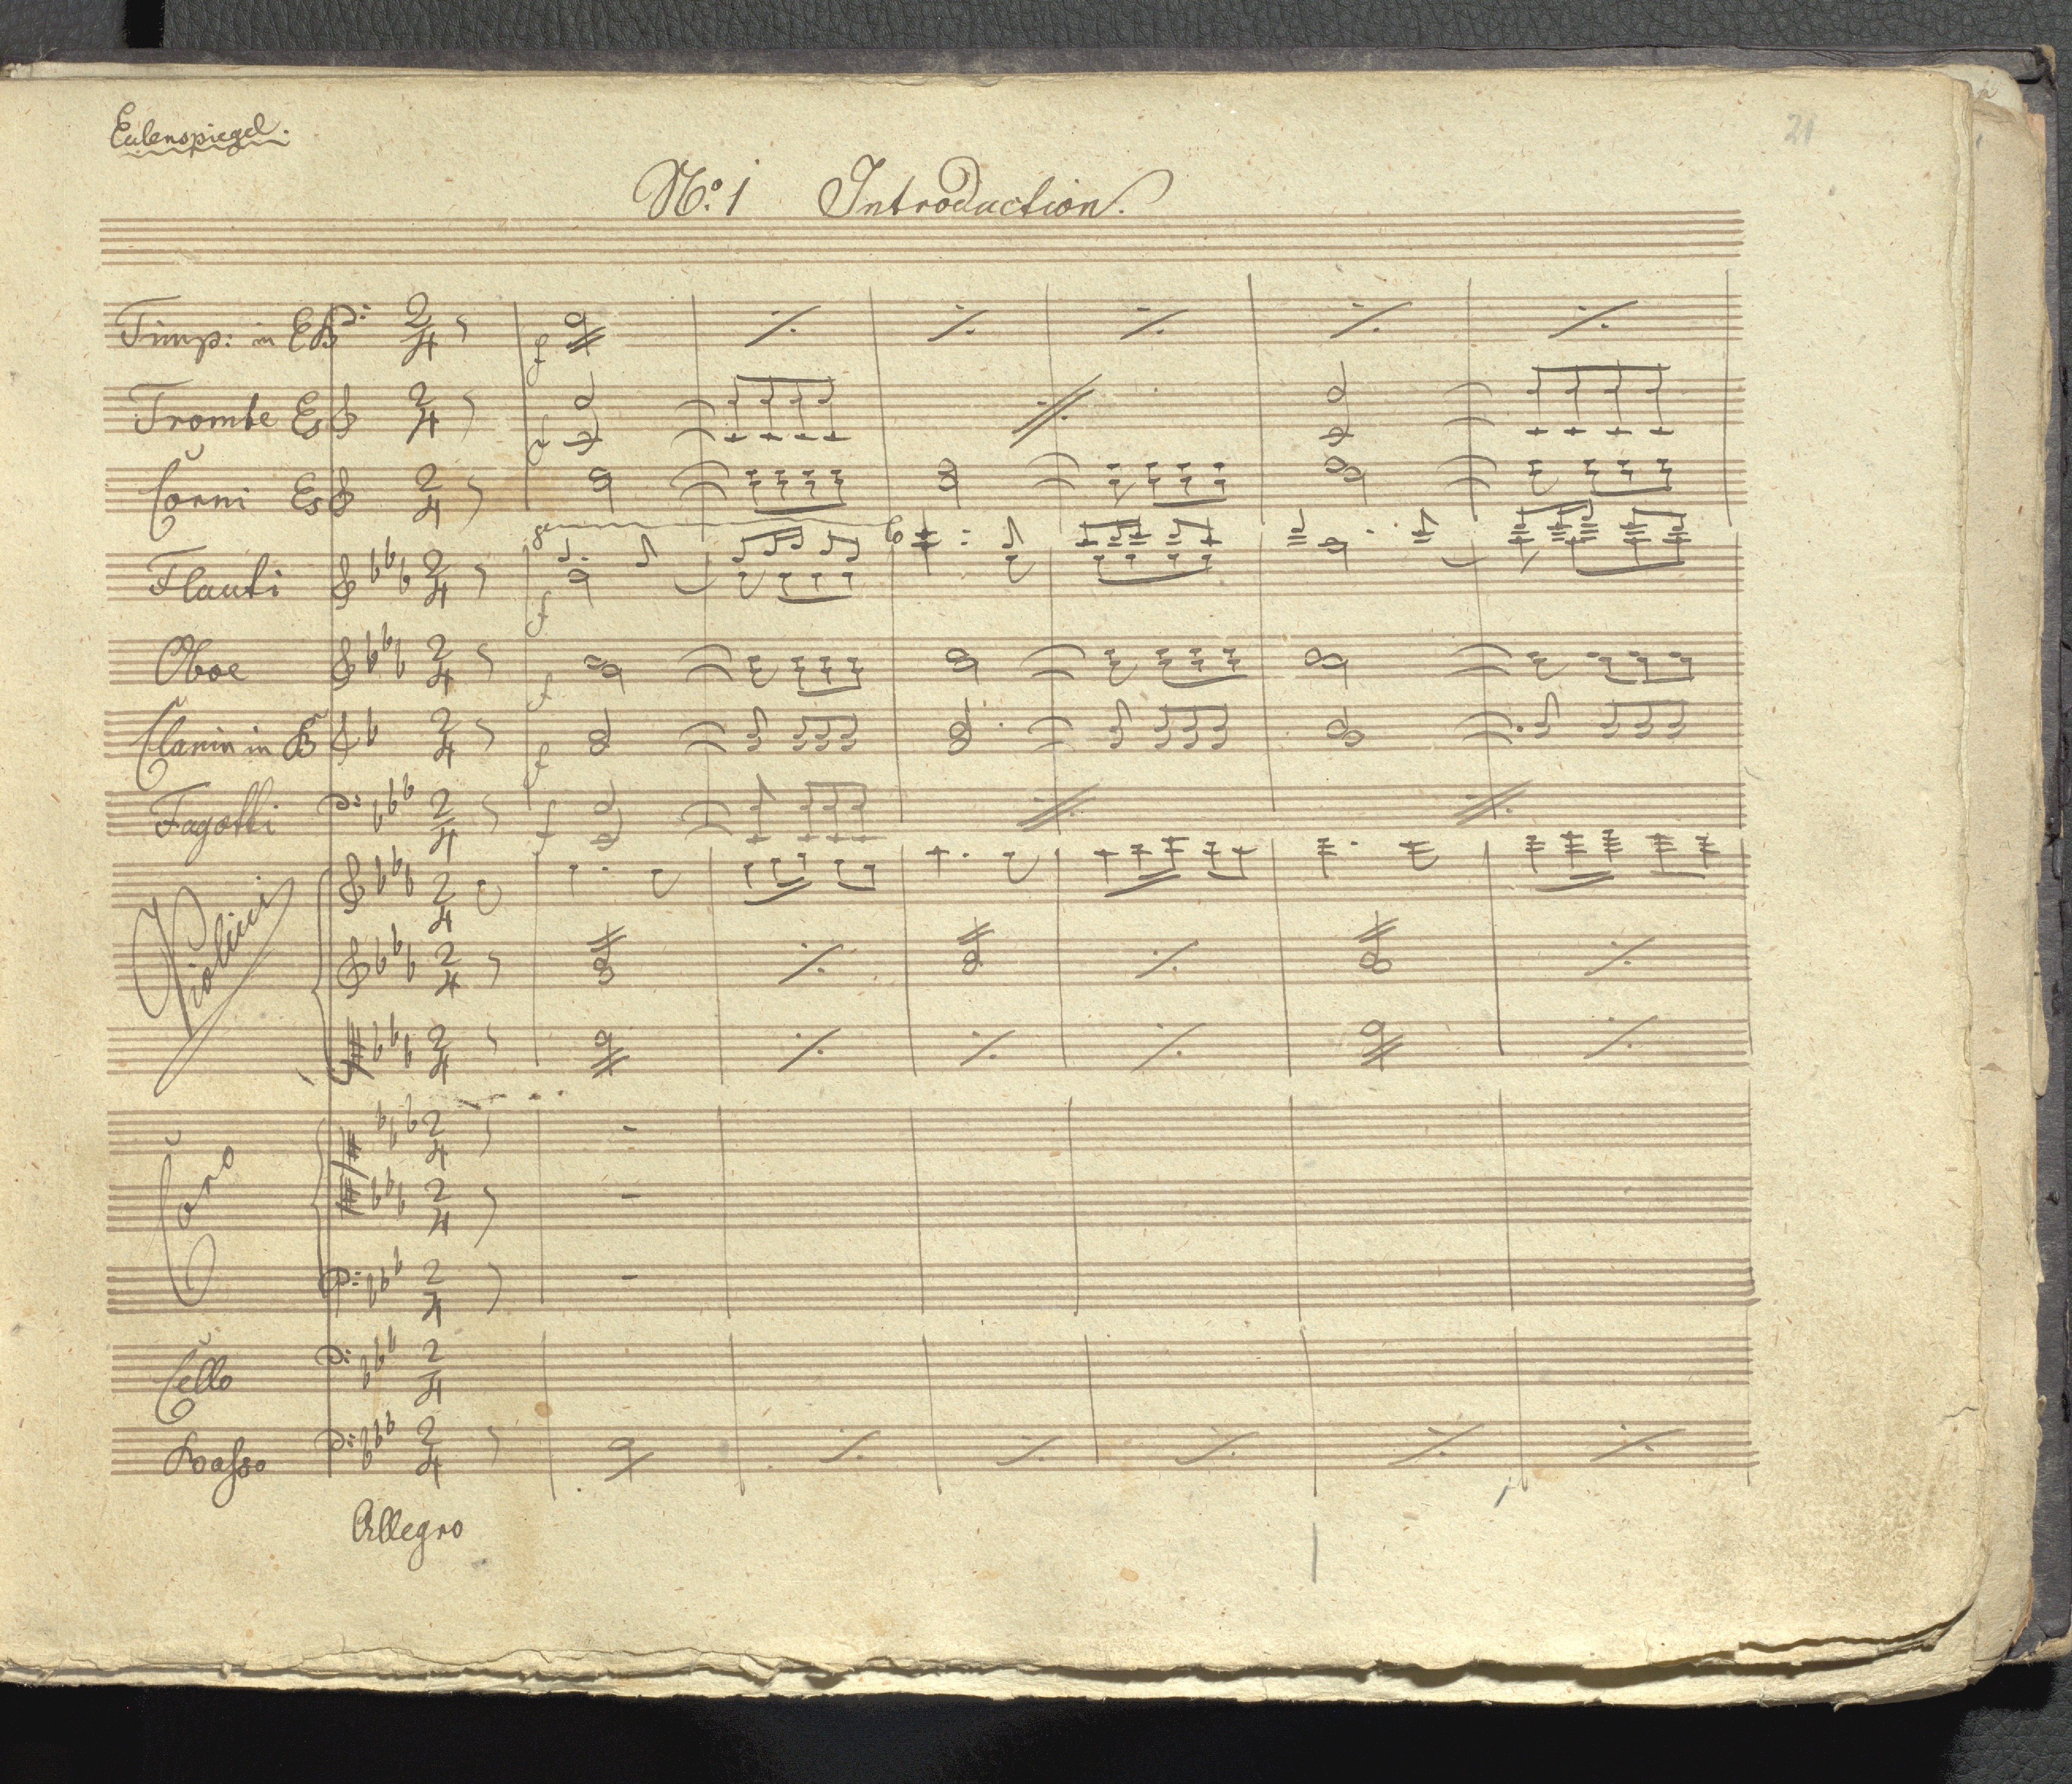 Eulenspiegel.
21
No. 1 Introduction.
Timp: in Es
Trombe Es
Corni Es
Flauti
Oboe
Clarin in B
Fagotti
Violini
Cano
Cello
Basso
Allegro